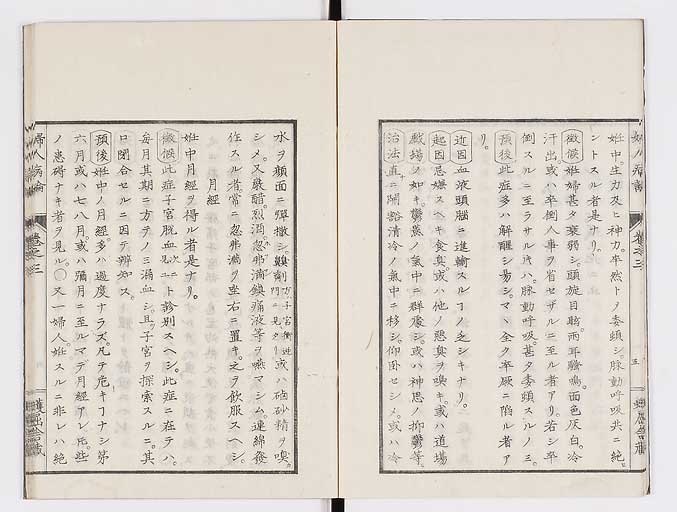 妊中。生力及ヒ神力。卒然トノ委頓シ。脉動呼吸共ニ絶
ントスル者是ナリ。
徴候 妊婦甚タ衰弱シ。頭旋目眩。而耳聾鳴。面色灰白。冷
汗出或ハ卒倒人事ヲ省セザルニ至ル者アリ。若シ卒
倒スルニ至ラサル片ハ。脉動呼吸。甚タ委頓スルノミ。
預後 此症多ハ解醒シ易シ。マヽ全ク卒厥ニ陷ル者ア
リ。
近因 血液頭腦ニ進輸スルヿノ乏シキナリ。
起因 忌嫌スヘキ食臭或ハ他ノ惡臭ヲ嗅キ。或ハ道場
戯場ノ如キ。鬱蒸ノ氣中ニ群處シ。或ハ神思ノ抑鬱等。
治法 直ニ開豁清冷ノ氣中ニ移シ。仰臥セシメ。或ハ冷
婦人病論
卷之三
五
水ヲ顔面ニ彈撒シ。嗅劑 方子宮衝逆門ニ見タリ 或ハ硇砂精ヲ嗅
シメ。又嚴醋。烈消忽弗滿鎮痛液等ヲ嚥マシム。連綿發
作スル者。常ニ忽弗滿ヲ坐右ニ置キ。之ヲ飲服スヘシ。
月經
妊中月經ヲ得ル者是ナリ。
徴候 此症子宮脫血 見次 ニト診別スヘシ。此症ニ在テハ。
毎月其期ニ方テノミ漏血シ。且子宮ヲ探索スルニ。其
口閉合セルニ因テ辨知ス。
預後 妊中ノ月經多ハ過度ナラズ。凡テ危キヿナシ。第
六月或ハ七八月。或ハ彌月ニ至ルマデ月經アレ𪜈。些
ノ患碍ナキ者ヲ見ル。○又一婦人妊スルニ非レハ絶
婦人病論
卷之三